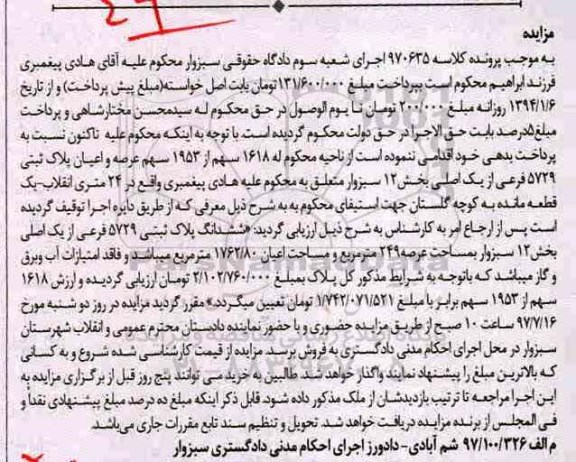 ۲۹
مزایده
به موجب پرونده کلاسه ۹۷۰۶۳۵ اجرای شعبه سوم دادگاه حقوقی سبزوار محکوم علیه آقای هادی پیغمبری
فرزند ابراهیم محکوم است بپرداخت مبلغ ۱۳۱/۶۰۰/۰۰۰تومان بابت اصل خواسته(مبلغ پیش پرداخت) و از تاریخ
۱۳۹۴/۱/۶ روزانه مبلغ ۲۰۰/۰۰۰ تومان تا یوم الوصول در حق محکوم له سیدمحسن مختارشاهی و پرداخت
مبلغ۵درصد بابت حق الاجرا در حق دولت محکوم گردیده است. با توجه به اینکه محکوم علیه تاکنون نسبت به
پرداخت بدهی خود اقدامی ننموده است از ناحیه محکوم له ۱۶۱۸ سهم از ۱۹۵۳ سهم عرصه و اعیان پلاک ثبتی
۵۷۲۹ فرعی از یک اصلی بخش۱۲ سبزوار متعلق به محکوم علیه هادی پیغمبری واقع در ۲۴ متری انقلاب-یک
قطعه مانده به کوچه گلستان جهت استیفای محکوم به به شرح ذیل معرفی که از طریق دایره اجرا توقیف گردیده
است پس از ارجاع امر به کارشناس به شرح ذیل ارزیابی گردید: «ششدانگ پلاک ثبتی ۵۷۲۹ فرعی از یک اصلی
بخش۱۲ سبزوار بمساحت عرصه۲۴۹ مترمربع و مساحت اعیان ۱۷۶۲/۸۰ مترمربع میباشد و فاقد امتیازات آب وبرق
و گاز میباشد که باتوجه به شرایط مذکور کل پلاک بمبلغ ۲/۱۰۲/۷۶۰/۰۰۰ تومان ارزیابی گردیده و ارزش ۱۶۱۸
سهم از ۱۹۵۳ سهم برابر با مبلغ ۱/۷۴۲/۰۷۱/۵۲۱ تومان تعیین میگردد.» مقرر گردید مزایده در روز دو شنبه مورخ
۹۷/۷/۱۶ ساعت ۱۰ صبح از طریق مزایده حضوری و با حضور نماینده دادستان محترم عمومی و انقلاب شهرستان
سبزوار در محل اجرای احکام مدنی دادگستری به فروش برسد. مزایده از قیمت کارشناسی شده شروع و به کسانی
که بالاترین مبلغ را پیشنهاد نمایند واگذار خواهد شد. طالبین به خرید می توانند پنج روز قبل از برگزاری مزایده به
این اجرا مراجعه تا ترتیب بازدیدشان از ملک مذکور داده شود. قابل ذکر اینکه مبلغ ده درصد مبلغ پیشنهادی نقداً و
فی المجلس از برنده مزایده دریافت خواهد شد. تحویل و تنظیم سند تابع مقررات جاری می‌باشد.
م الف ۹۷/۱۰۰/۳۲۶ شم آبادی- دادورز اجرای احکام مدنی دادگستری سبزوار